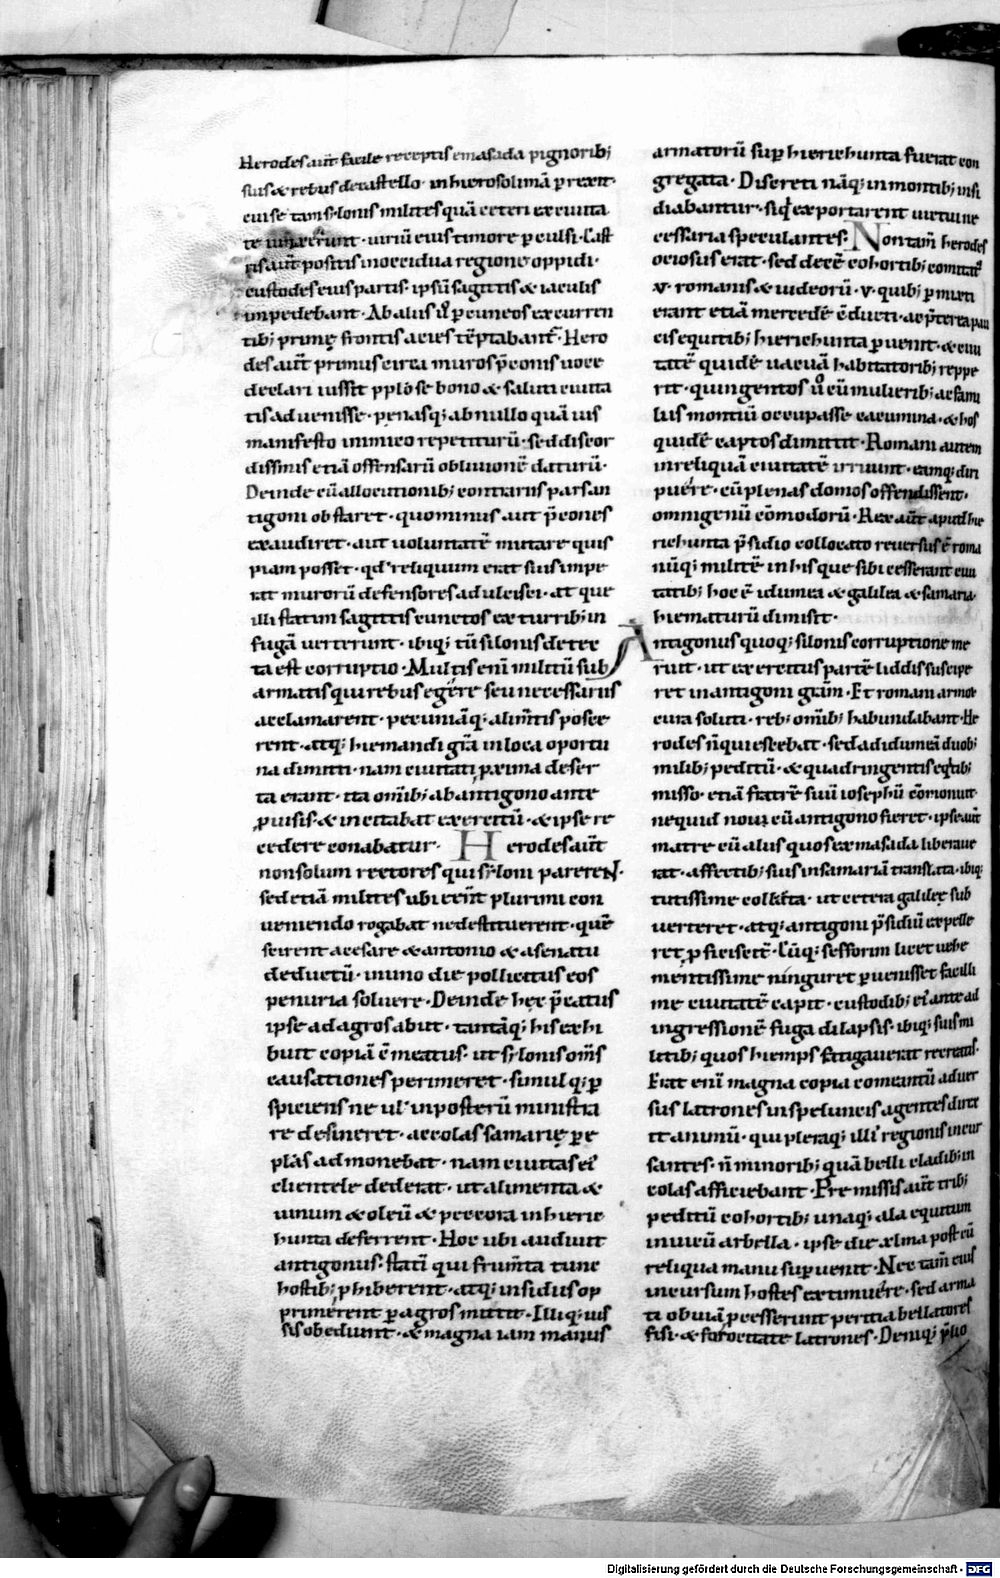 Herodes aut̄ facile receptis emasada pignorib;
suis & rebus decastello· inhierosolimā ꝑrexit·
cui se tam sẏlonis milites quā ceteri exciuita
te iunxer̄unt· uiriū eius timore ꝑculsi· Cast
ris aut̄ positis inoccidua regione oppidi·
custodes eius partis· ipsū sagittis & iaculis
inpedebant· Ab alus ů ꝑcuneos excurren
tib; primę frontis acies tēptabant̄· Hero
des aut̄ primus circa muros p̄conis uoce
declari iussit pp̄lo se bono & saluti ciuita
tis aduenisse· penasq; abnullo quāuis
manifesto inimico repetiturū· sed discor
dissimis etiā offensarū obliuionē daturū·
Deinde cū allocutionib; contrariis pars an
tigoni obstaret· quominus aut p̄cones
exaudiret· aut uoluntatē mutare quis
piam posset· qd̄ reliquum erat suis impe
rat murorū defensores adulcisci· at que
illi statim sagittis cunctos ex turrib; in
fugā uerterunt· ibiq; tū silonis detec
ta est corruptio· Multis enī militū sub
armatis qui rebus egere seu necessariis
acclamarent· pecuniāq; alim̄tis posce
rent· atq; hiemandi gr̄a in loca oportu
na dimitti· nam ciuitati ꝓxima deser
ta erant· ita om̄ib; ab antigono ante
ꝓuisis· & incitabat exercitū· & ipse re
cedere conabatur· Herodes aut̄
non solum rectores qui sẏloni parerent·
sed etiā milites ubi erant plurimi con
ueniendo rogabat ne destituerent· quē
scirent a cesare & antonio & a senatu
deductū· in uno die pollicitus eos
penuria soluere· Deinde hęc p̄catus
ipse ad agros abiit· tantāq; his exhi
buit copiā cm̄eatus· ut sẏlonis om̄s
causationes perimeret· simulq; ꝓ
spiciens ne ul' inposterū ministra
re desineret· accolas samarię ꝑe
plās admonebat· nam ciuitas ei'
clientele dederat· ut alimenta &
uinum & oleū & peccora in hieric
hunta deferrent· Hoc ubi audiuit
antigonus· stati qui frum̄ta tunc
hostib; ꝓhiberent· atq; insidiis op
primerent ꝑ agros mittit· Illi q; ius
sis obediunt· & magna iam manus
armatorū sup̄ hierichunta fuerat con
gregata· Discreti nāq; in montib; insi
diabantur· siq̄ exportarent uictui ne
cessaria speculantes· Non tam̄ herodes
ociosus erat· sed decē cohortib; comitat'
·v· romanis & iudeorū ·v· quib; ꝑmixti
erant etiā mercede c̄ducti· ac p̄terea pau
cis equitib; hierichunta ꝑuenit· & ciui
tatē quidē uacuā habitatorib; reppe
rit· quingentos ů cū mulierib; ac fami
liis montiū occupasse cacumina· & hos
quidē captos dimittit· Romani autem
in reliquā ciuitatē irruunt· eamq; diri
puere· cū plenas domos offendissent·
omnigenū cōmodorū· Rex aut̄ apud hie
richunta p̄sidio collocato reuersus ē roma
nūq; militē in his que sibi cesserant ciui
tatib; hoc ē idumea & galilea & samaria
hiematurū dimisit·
Antigonus quoq; silonis corruptione me
ruit· ut exercitus partē liddis suscipe
ret in antigoni grām· Et romani armor
cura soluti· reb; om̄ib; habundabant· He
rodes n̄ quiescebat· sed ad idumeā duob;
milib; peditū· & quadringentis eq̄tib;
misso· etiā fratrē suū iosephū cōrionuit
ne quid noui cū antigono fieret· ipse aut̄
matre cū aliis quos ex masada liberaue
rat· affectib; suis in samariā translata· ibiq;
tutissime collocata· ut cetera galileę sub
uerteret· atq; antigoni p̄sidiū expelle
ret ꝓficiscit̄· Cūq; sefforim licet uehe
mentissime ninguret ꝑuenisset facilli
me ciuitatē capit· custodib; ei' ante ad
ingressionē fuga dilapsis· ibiq; suis mi
litib; quos hiemps fatigauerat recreatis·
Erat enī magna copia comeantū aduer
sus latrones in speluncis agentes direx
it animū· qui pleraq; illi' regionis incur
santes· n̄ minorib; quā belli cladib; in
colas afficiebant· Premissis aut̄ trib;
peditū cohortib; unaq; ala equitum
in uicū arbella· ipse die xlma post cū
reliqua manu sup̄uenit· Nec tam̄ eius
incursum hostes extimuere· sed arma
ti obuiā ꝓcesserunt peritia bellatores
fisi· & ferocitate latrones· Deniq; p̄lio
Digitalisierung gefördert durch die Deutsche Forschungsgemeinschaft - DFG